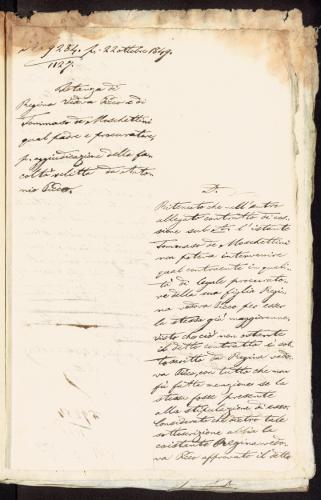 N. 9284. p. 22 ottobre 1849.
1127.
Istanza di
Regina vedova Pico e di
Tommaso de Moschettini
qual padre e procuratore,
p. aggiudicazione della fa-
coltà relitta da Anto-
nio Pico.
D.
Ritenuto che nell'antro
allegato contratto di ces-
sione sub A. l'istante
Tommaso de Moschettini
non poteva intervenire
qual contraente in quali-
tà di legale procurato-
re della sua figlia Regi-
na vedova Pico per esser
la stessa già maggiorenne,
visto che ciò non ostante
il detto contratto è sot-
toscritto da Regina vedo-
va Pico, con tutto che non
si fatta menzione se la
stessa fosse presente
alla stipulazione di esso.
Considerato che dietro tale
sottoscrizione abbia la
coistante Regina vedo-
va Pico approvato il detto